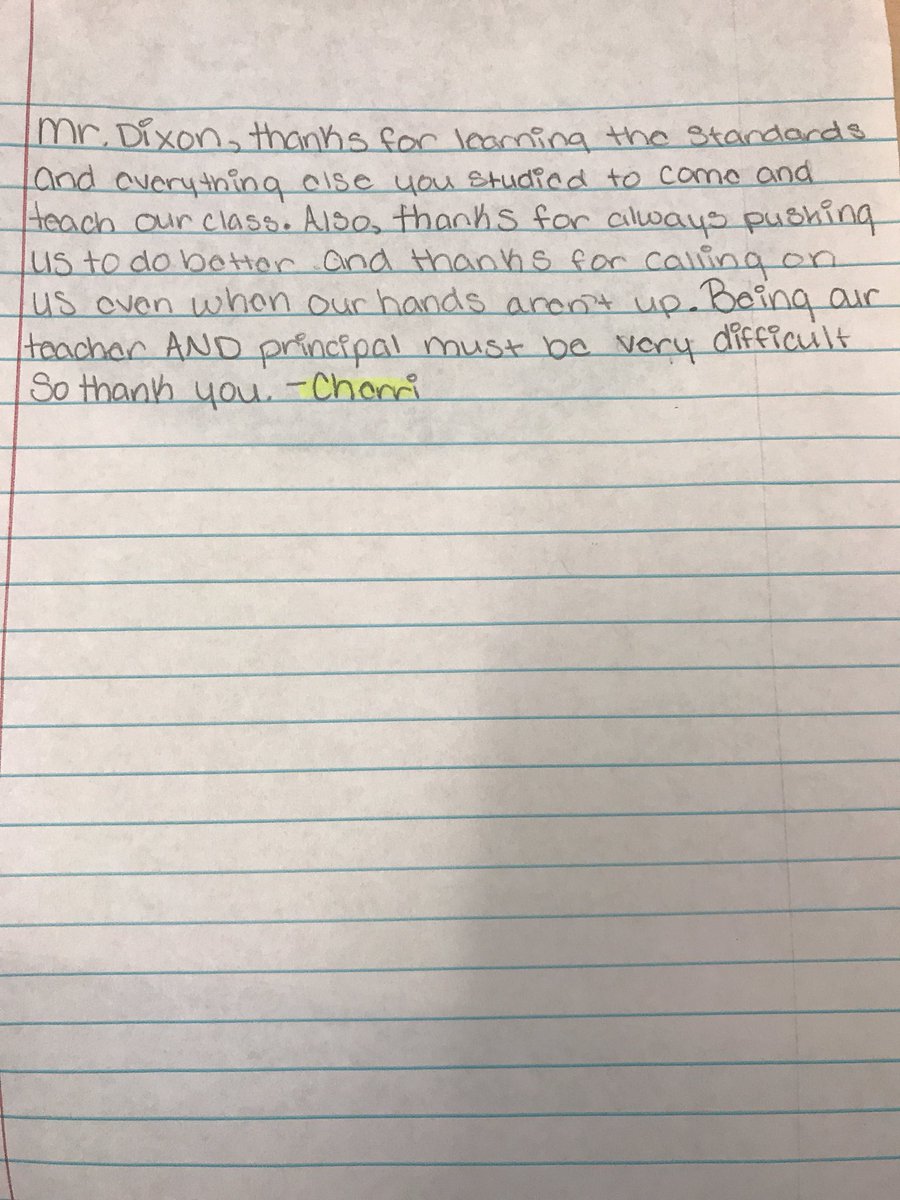 Mr. Dixon, thanks for learning the standards
and everything else you studied to come and
teach our class. Also, thanks for always pushing
us to do better and thanks for calling on
us even when our hands aren't up. Being our
teacher AND principal must be very difficult
So thank you. -Cherri